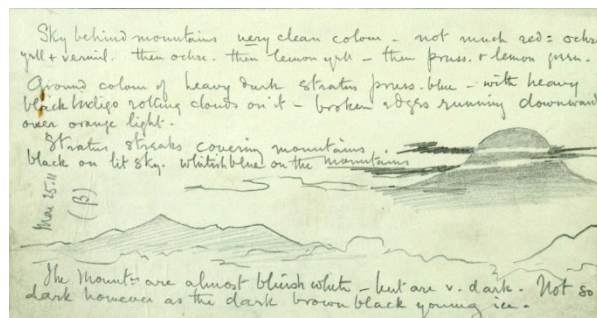 Sky behind mountains very clean colour - not much red = ochre
yell + vermil. then ochre. then lemon yell - then pruss. + lemon green.
Ground colour of heavy dark stratus pruss. blue - with heavy
black Indigo rolling clouds on it - broken edges running downward
over orange light.
Stratus streaks covering mountains
black on lit sky. whitish blue on the mountains
Mar 25.11
(β)
The Mount<sup>ns</sup> are almost bluish white - but are v. dark. Not so
dark however as the dark brown black young ice.